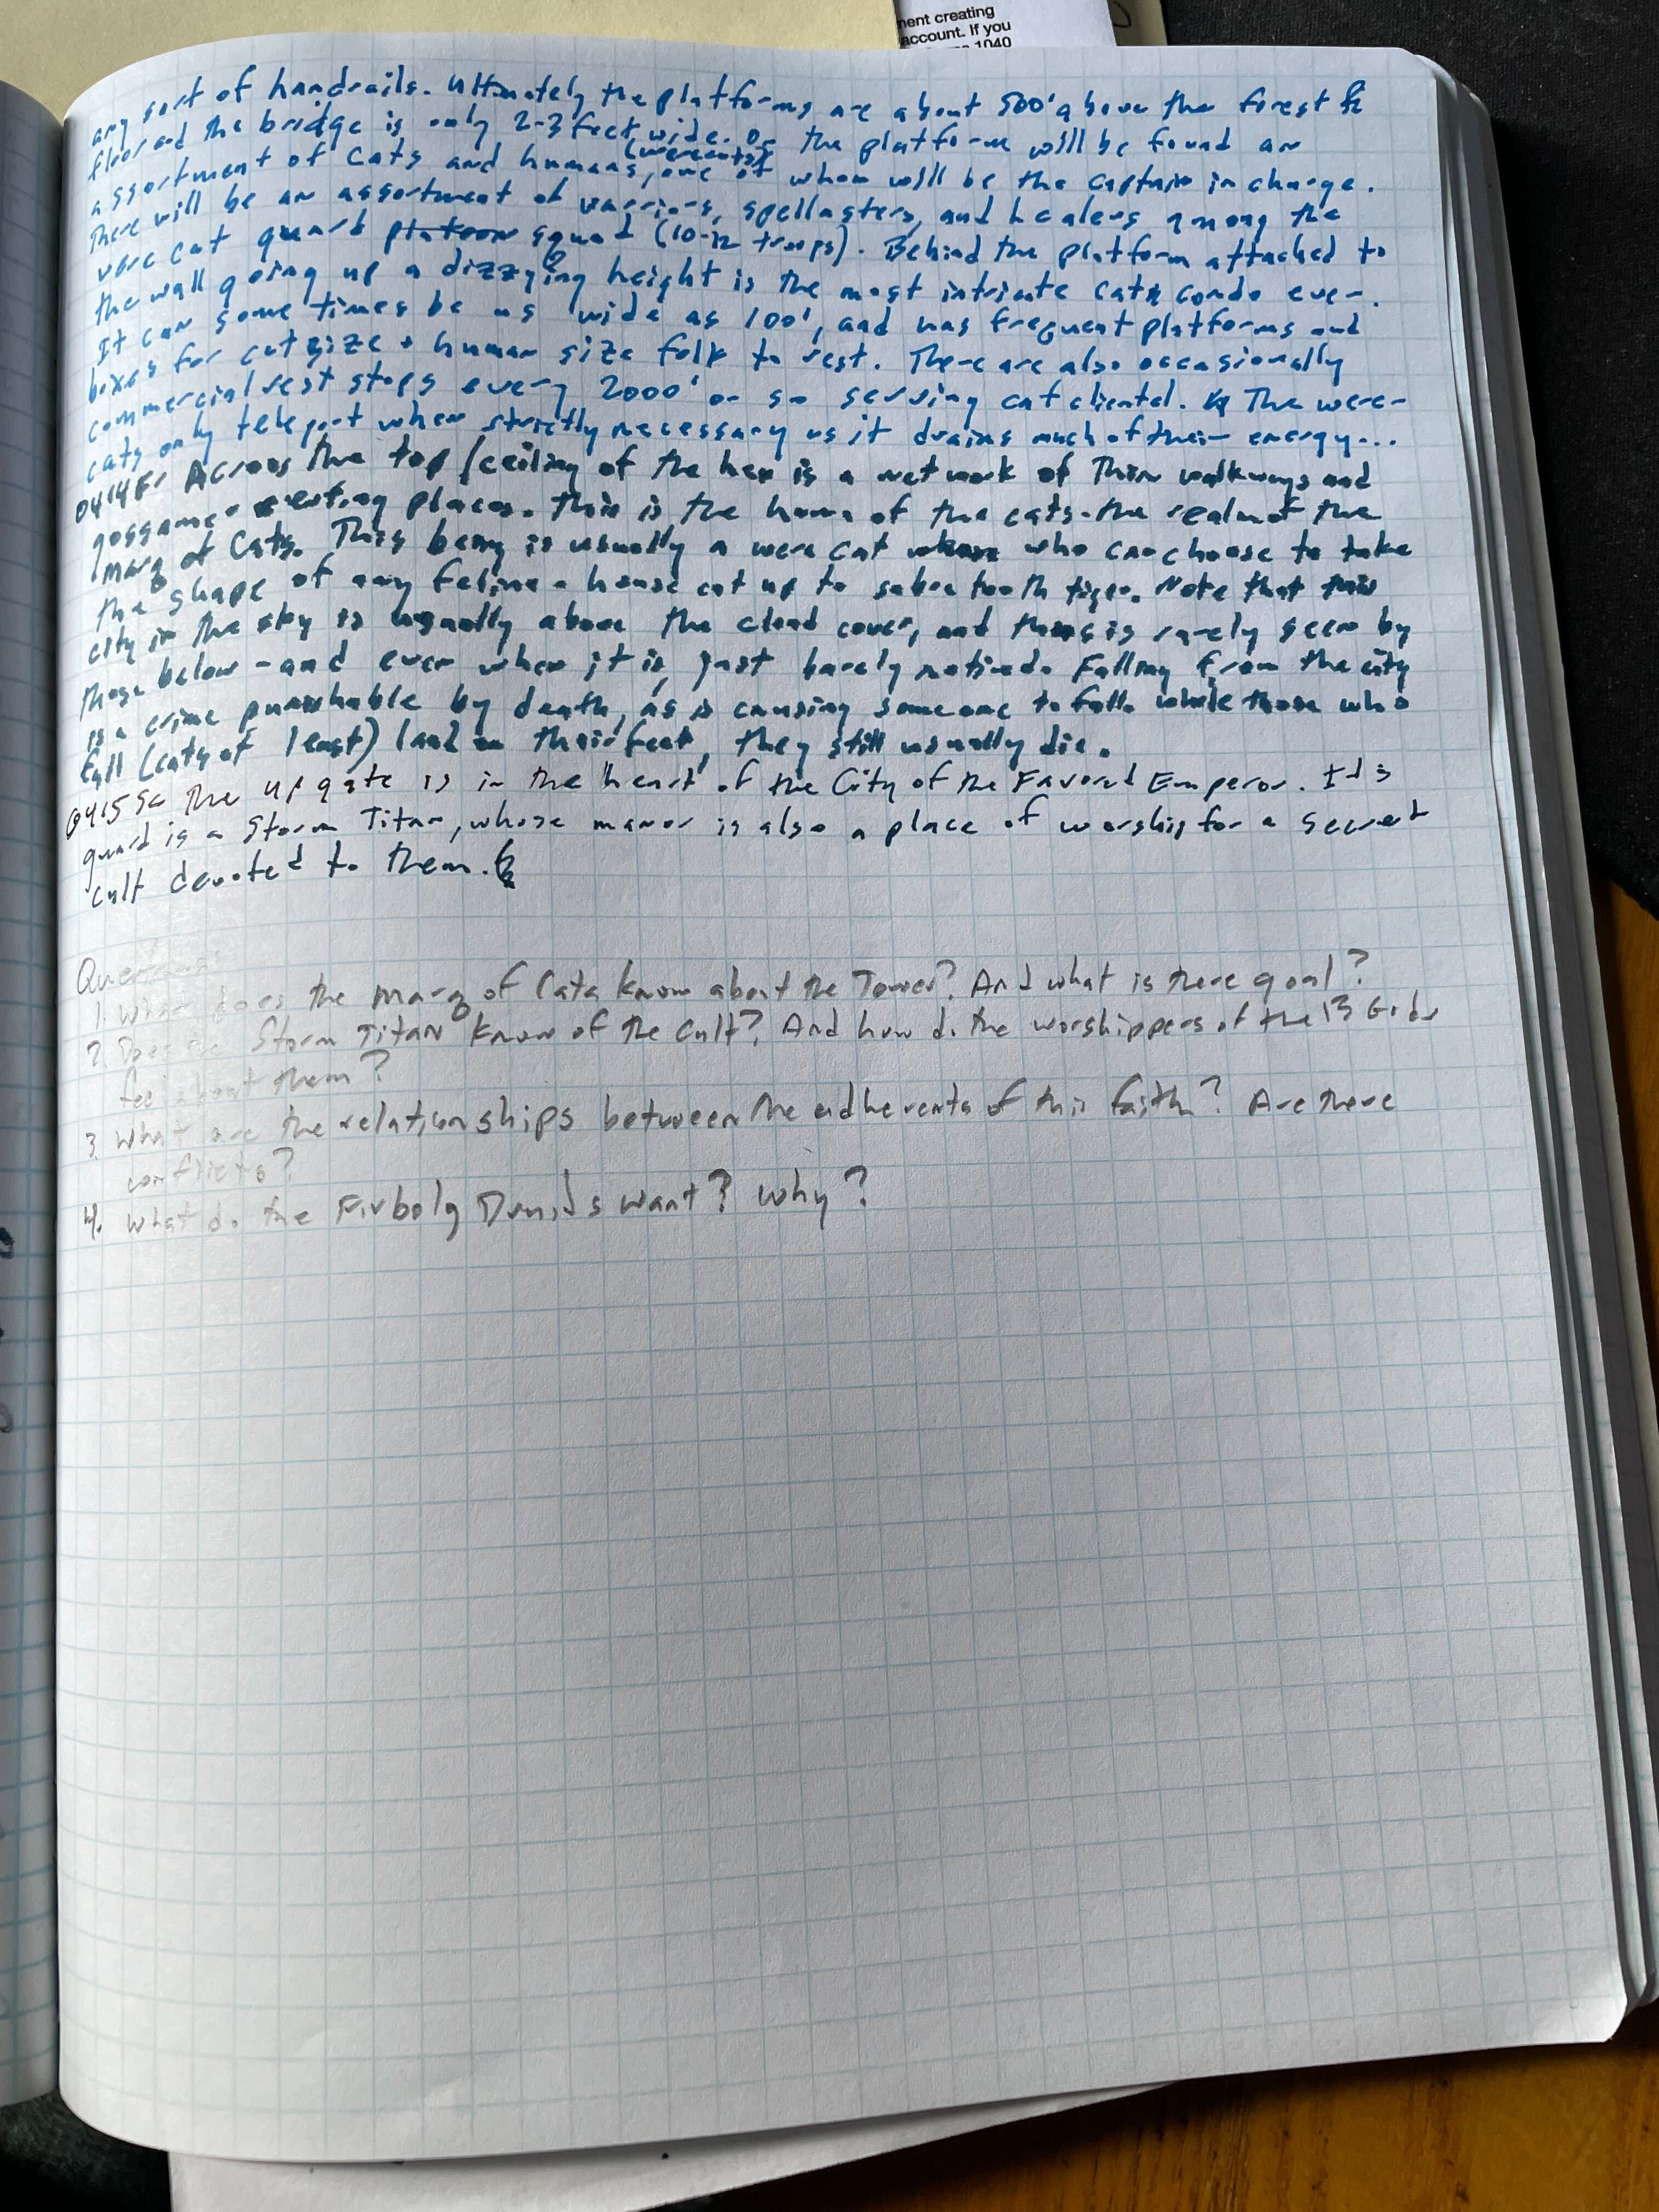 nent creating
account. If you
1040
any sort of handrails. Ultimately the platforms are about 500' above the forest
floor and the bridge is only 2-3 feet wide. On the platform will be found an
assortment of cats and humans, (werecats) one of whom will be the captain in charge.
There will be an assortment of warriors, spellcasters, and healers among the
were cat guard platoon squad (10-12 troops). Behind the platform attached to
the wall going up a dizzying height is the most intricate cat condo ever.
It can some times be as wide as 100', and has frequent platforms and
boxes for cat size + human size folk to rest. There are also occasionally
commercial rest stops every 2000' or so serving cat cliental. The were-
cats only teleport when strictly necessary as it drains much of their energy...
0414F: Across the top/ceiling of the hex is a network of thin walkways and
gossamer resting places. This is the home of the cats - the realm of the
Marq of Cats. This being is usually a were cat who can choose to take
the shape of any feline - house cat up to saber tooth tiger. Note that this
city in the sky is usually above the cloud cover, and thus is rarely seen by
those below - and even when it is, just barely noticed. Falling from the city
is a crime punishable by death, as is causing someone to fall. While those who
fall (cats at least) land on their feet, they still usually die.
0415S: The up gate is in the "heart" of the City of the Favored Emperor. It's
guard is a Storm Titan, whose manor is also a place of worship for a secret
cult devoted to them.
Questions:
1. What does the Marq of Cats know about the Tower? And what is there goal?
2. Does the Storm Titan know of the cult? And how do the worshippers of the 13 Gods
feel about them?
3. What are the relationships between the adherents of this faith? Are there
conflicts?
4. What do the Firbolg Druids want? Why?